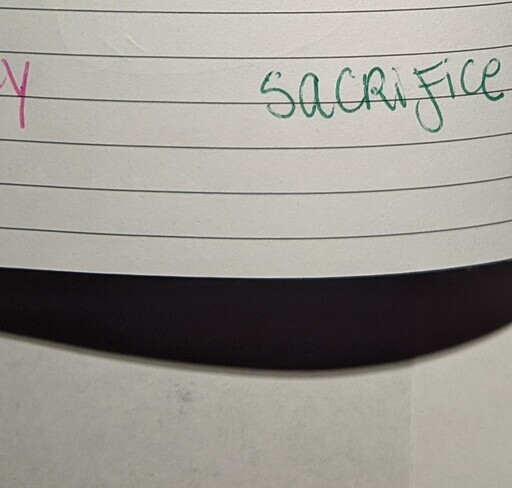 y sacrifice